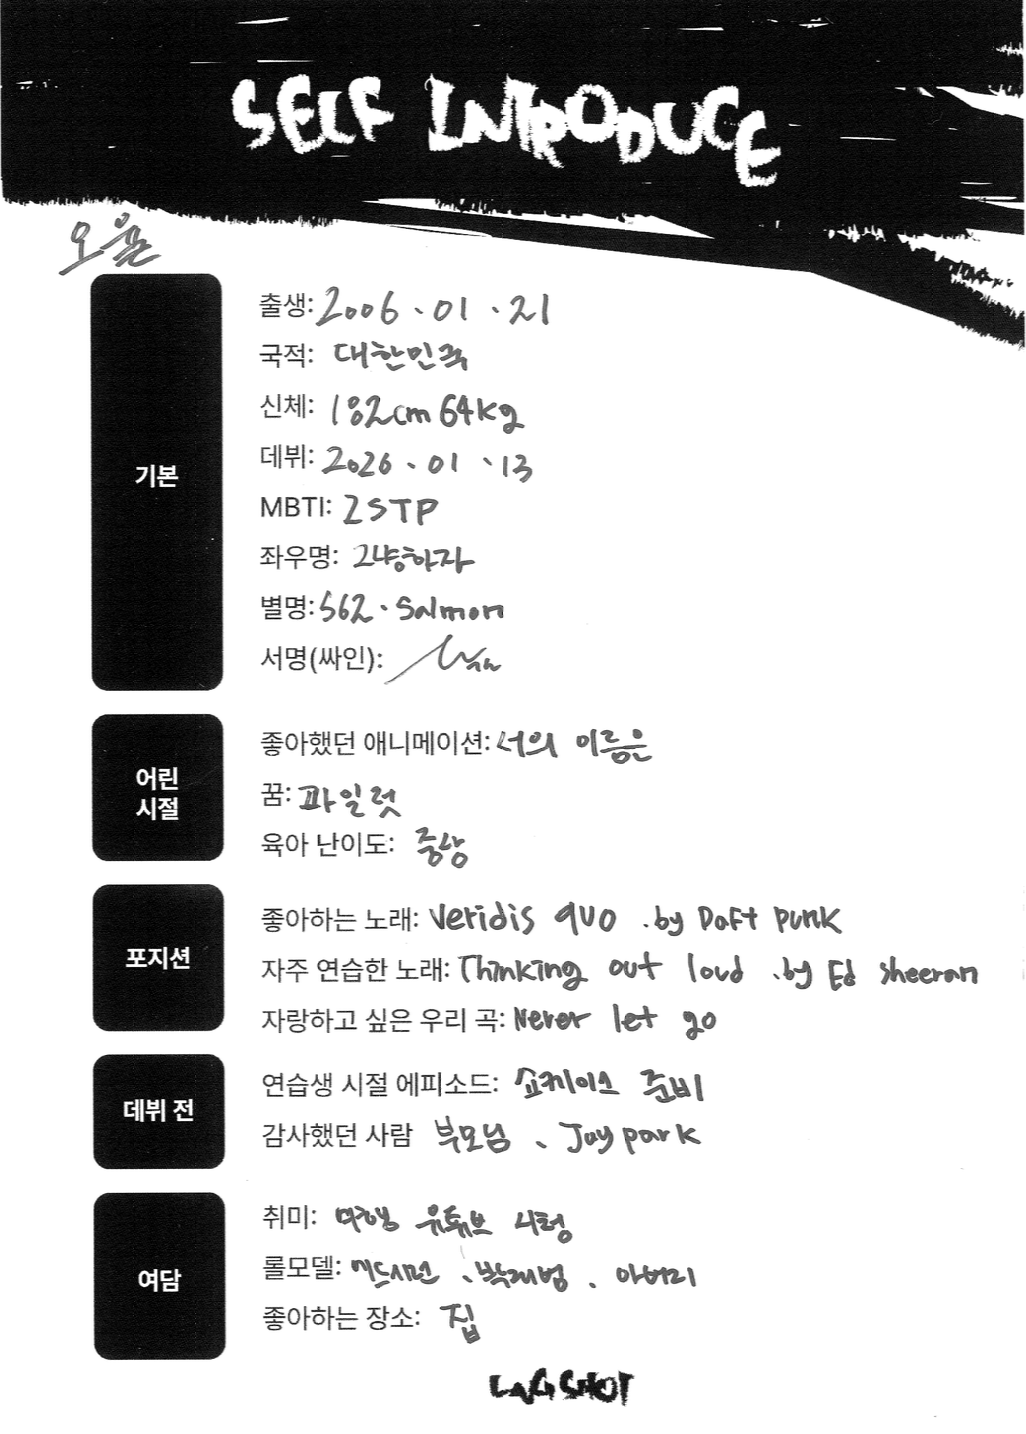 SELF INTRODUCE
오율
기본
출생: 2006.01.21
국적: 대한민국
신체: 182cm 64kg
데뷔: 2026.01.13
MBTI: ISTP
좌우명: 그냥하자
별명: 562. Salmon
서명(싸인):
어린
시절
좋아했던 애니메이션: 너의 이름은
꿈: 파일럿
육아 난이도: 중상
포지션
좋아하는 노래: Veridis quo .by Daft Punk
자주 연습한 노래: Thinking out loud .by Ed sheeran
자랑하고 싶은 우리 곡: Never let go
데뷔 전
연습생 시절 에피소드: 쇼케이스 준비
감사했던 사람 부모님、Jay park
여담
취미: 여행 유튜브 시청
롤모델: 에드시런、박재범. 아버지
좋아하는 장소: 집
LNGSHOT